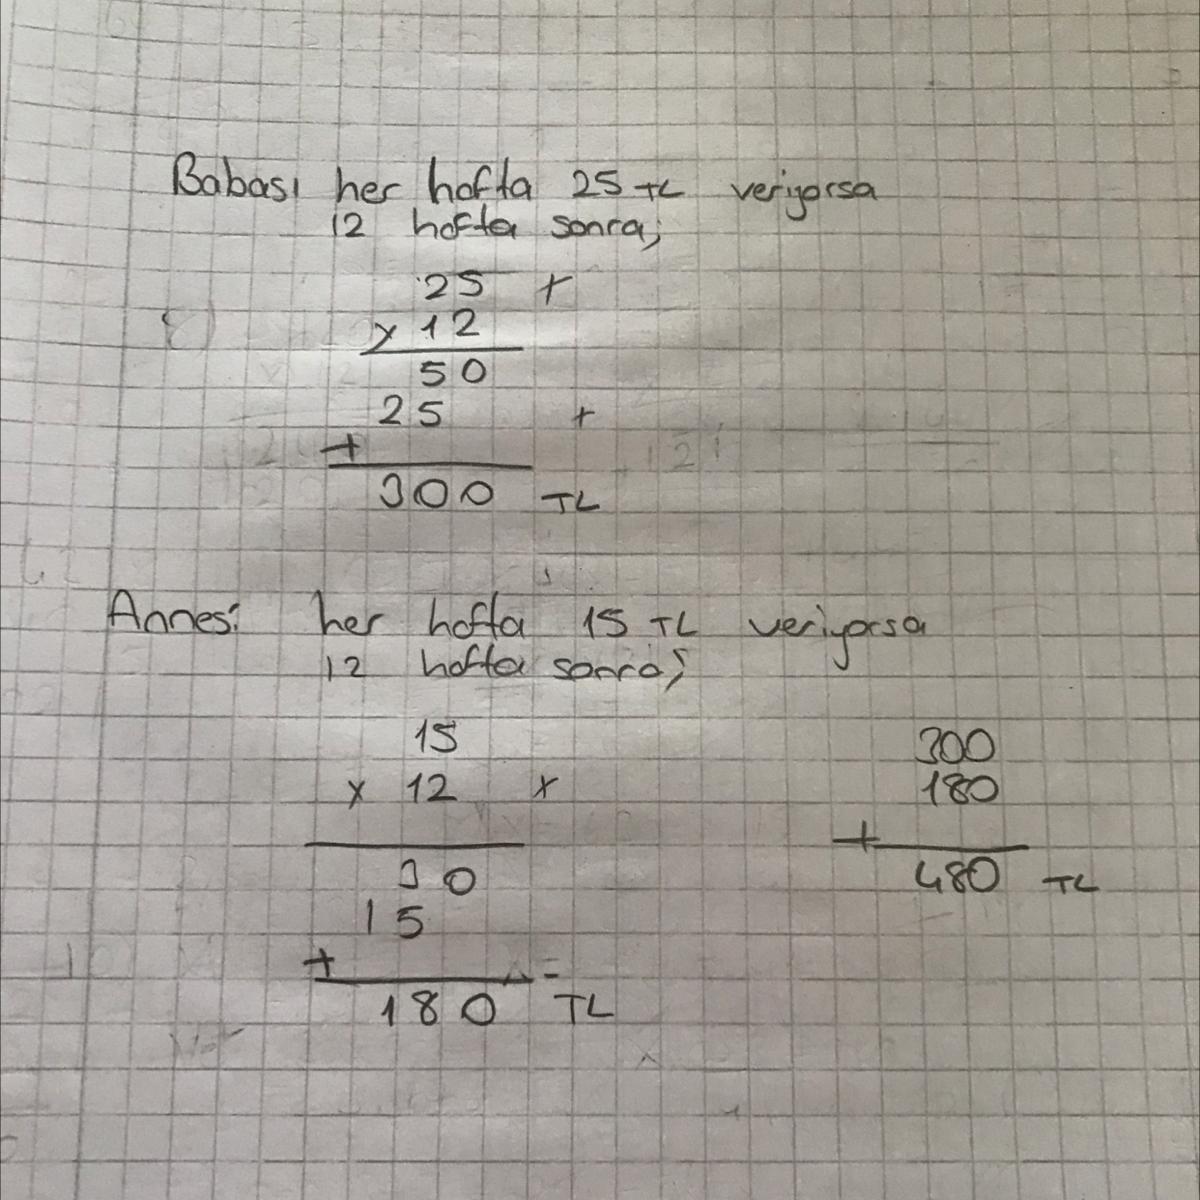 Babası her hafta 25 TL veriyorsa
12 hafta sonra;
25 +
x 12
50
25 +
+
300 TL
Annesi her hafta 15 TL veriyorsa
12 hafta sonra;
15
x 12 x
30
15
+
180 TL
300
180
+
480 TL